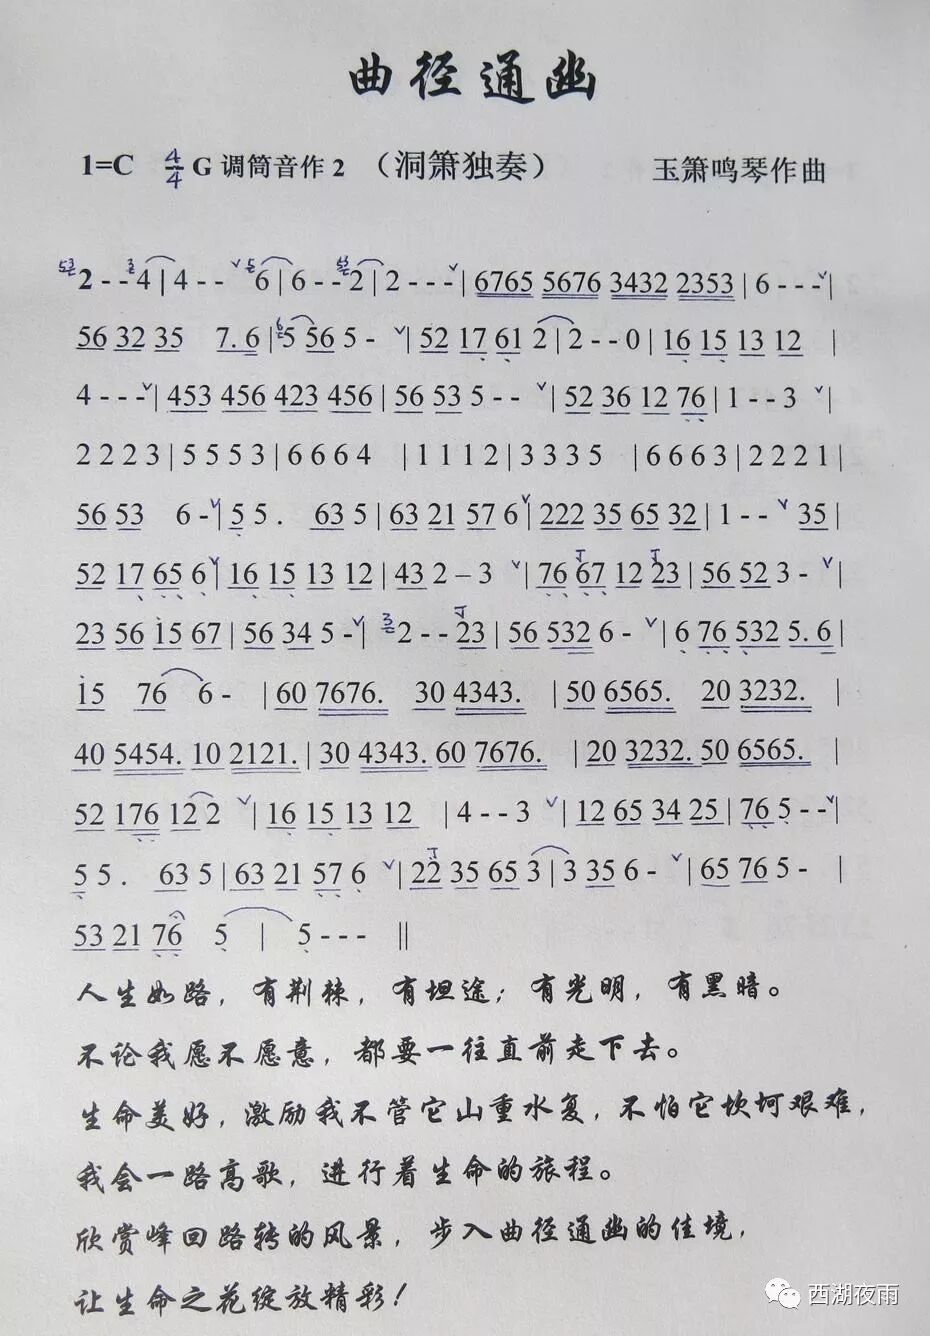 曲径通幽
1=C 4/4 G 调筒音作 2 （洞箫独奏） 玉箫鸣琴作曲
2 - - 4 | 4 - - ˅ 6 | 6 - - 2 | 2 - - - ˅ | 6765 5676 3432 2353 | 6 - - - ˅ |
56 32 35 7. 6 | 5 56 5 - ˅ | 52 17 61 2 | 2 - - 0 | 16 15 13 12 |
4 - - - ˅ | 453 456 423 456 | 56 53 5 - - ˅ | 52 36 12 76 | 1 - - 3 ˅ |
2 2 2 3 | 5 5 5 3 | 6 6 6 4 | 1 1 1 2 | 3 3 3 5 | 6 6 6 3 | 2 2 2 1 |
56 53 6 - ˅ | 5 5 . 63 5 | 63 21 57 6 ˅ | 222 35 65 32 | 1 - - ˅ 35 |
52 17 65 6 ˅ | 16 15 13 12 | 43 2 – 3 ˅ | 76 67 12 23 | 56 52 3 - ˅ |
23 56 15 67 | 56 34 5 - ˅ | 2 - - 23 | 56 532 6 - ˅ | 6 76 532 5. 6 |
15 76 6 - | 60 7676. 30 4343. | 50 6565. 20 3232. |
40 5454. 10 2121. | 30 4343. 60 7676. | 20 3232. 50 6565. |
52 176 12 2 ˅ | 16 15 13 12 | 4 - - 3 ˅ | 12 65 34 25 | 76 5 - - ˅ |
5 5 . 63 5 | 63 21 57 6 ˅ | 22 35 65 3 | 3 35 6 - ˅ | 65 76 5 - |
53 21 76 5 | 5 - - - ‖
人生如路，有荆棘，有坦途；有光明，有黑暗。
不论我愿不愿意，都要一往直前走下去。
生命美好，激励我不管它山重水复，不怕它坎坷艰难，
我会一路高歌，进行着生命的旅程。
欣赏峰回路转的风景，步入曲径通幽的佳境，
让生命之花绽放精彩！
西湖夜雨